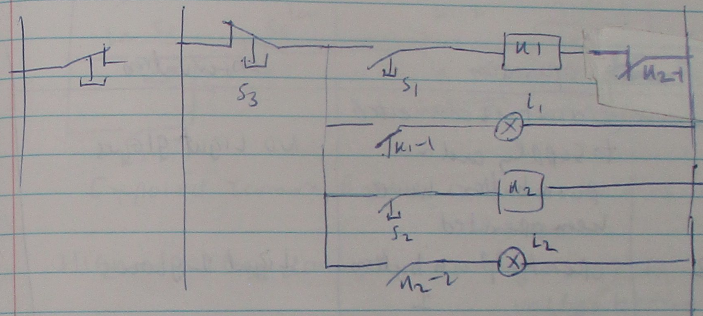 S3 S1 K1 K2-1
L1
K1-1
S2 K2
L2
K2-2